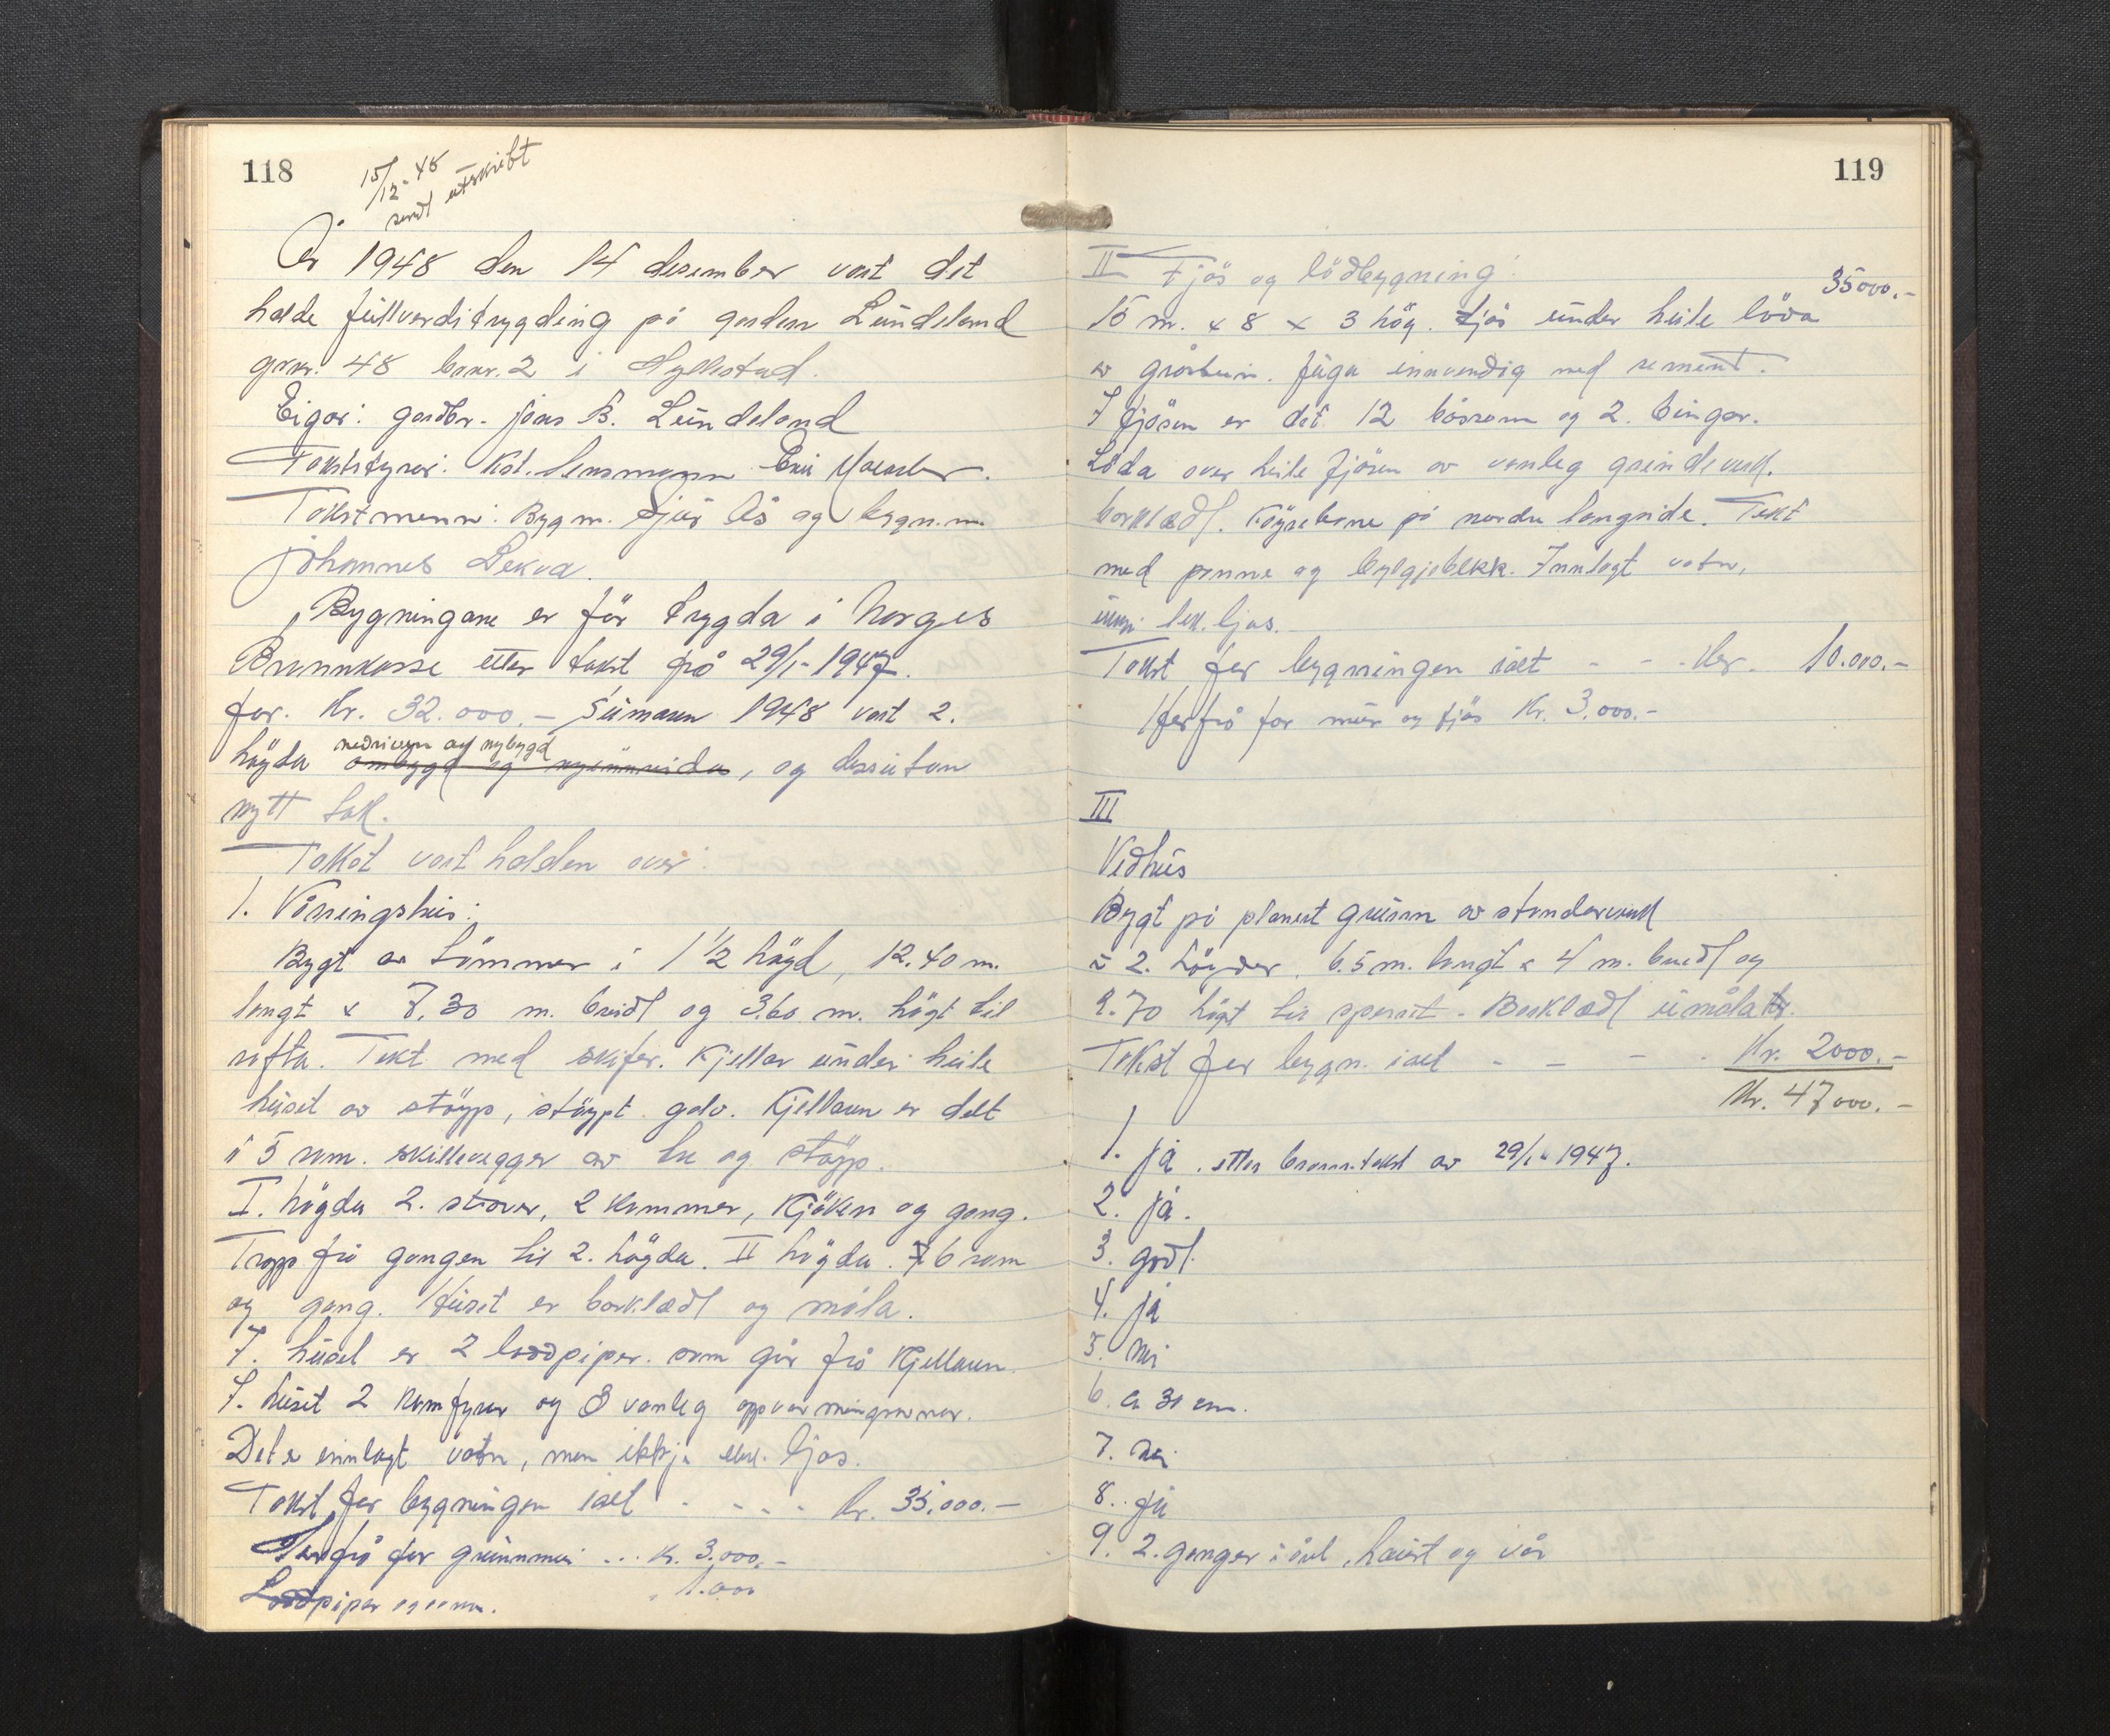 118
15/12-48
sendt utskrift
År 1948 den 14 desember vart det
halde fullverditrygding på garden Lundeland
gnr. 48 bnr. 2 i Hyllestad.
Eigar: gardbr. Jens B. Lundeland
Takststyrar: Kst. lensmann
Takstmenn: Bygm. Sjur Ås og bygn.m.
Johannes Lekva.
Bygningane er før trygda i Norges
Brannkasse etter takst frå 29/1-1947.
for. Kr. 32.000.- Sumaren 1948 vart 2.
høgda nedriven og nybygd, og dessutan
nytt tak.
Takst vart halden over:
1. Våningshus:
Bygt av tømmer i 1 1/2 høgd, 12.40 m.
langt x 7.30 m. breidt og 3.60 m. høgt til
rafta. Tekt med skifer. Kjellar under heile
huset av støyp, støypt golv. Kjellaren er delt
i 5 rom. skillevegger av tre og støyp.
I. høgda 2. stover, 2 kammer, kjøken og gang.
Tropp frå gangen til 2. høgda. II høgda. 6 rom
og gang. Huset er bordklædt og måla.
I. huset er 2 brandpiper. som går frå kjellaren.
I. huset 2 komfyrer og 8 vanleg oppvarmingsomnar.
Det er innlagt vatn, men ikkje elek. ljos.
Takst for bygningen ialt - - - - kr. 35.000.-
Herfrå for grunnmur ... kr. 3.000.-
piper og omn. 1.000
119
II Fjøs og lødbygning:
35000.-
15 m. x 8 x 3 høg. fjøs under heile løda
av gråstein. fuga innvendig med sement.
I fjøsen er det 12 båsrom og 2. bingar.
Løda over heile fjøsen av vanleg grindverk.
bordklædt. Køyrebrune på nordre langside. Tekt
med panne og bylgjeblekk. Innlagt vatn,
elek. ljos.
Takst for bygningen ialt - - - Kr. 10.000.-
Herfrå for mur og fjøs Kr. 3.000.-
III
Vedhus
Bygt på planert grunn av standerverk
i 2. høgder. 6.5 m. langt x 4 m. breidt og
høgt til sperret. Bordklædt umåla.
Takst for bygn. ialt - - - - Kr. 2000.-
Kr. 47000.-
1. ja. etter branntakst av 29/1-1947.
2. ja.
3. godt.
4. ja
5. nei
6. ca 30 cm.
7. nei
8. ja
9. 2. ganger i året, haust og vår